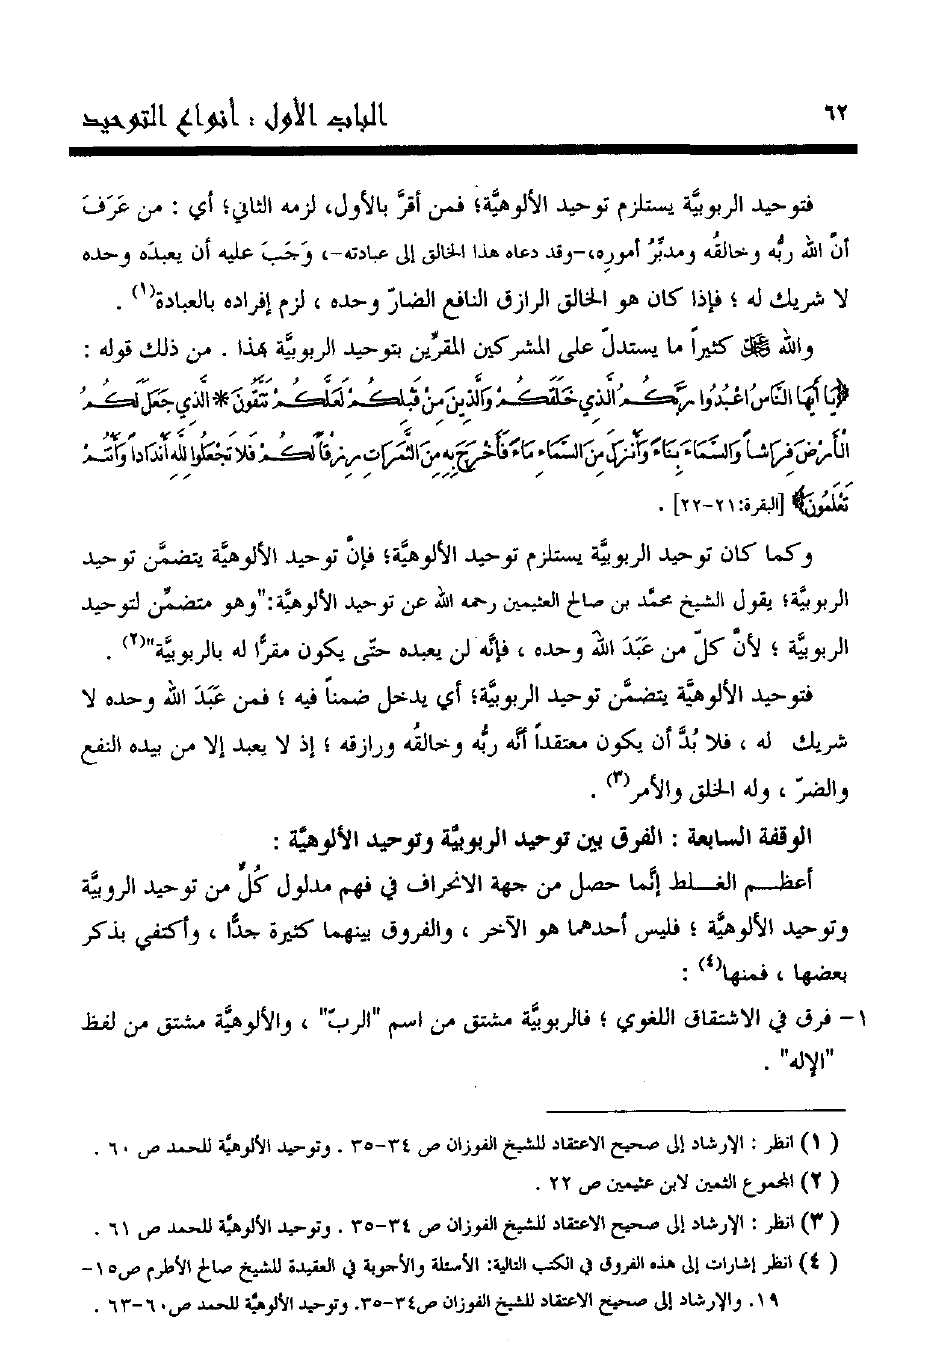 ٦٢
الباب الأول : أنواع التوحيد
فتوحيد الربوبيَّة يستلزم توحيد الألوهيَّة؛ فمن أقرَّ بالأول، لزمه الثاني؛ أي : من عَرَفَ
أنَّ الله ربُّه وخالقُه ومدبِّرُ أموره،-وقد دعاه هذا الخالق إلى عبادته-، وَجَبَ عليه أن يعبدَه وحده
لا شريك له ؛ فإذا كان هو الخالق الرازق النافع الضارّ وحده ، لزم إفراده بالعبادة(١) .
والله ﷻ كثيراً ما يستدلّ على المشركين المقرِّين بتوحيد الربوبيَّة بهذا . من ذلك قوله :
﴿يَا أَيُّهَا النَّاسُ اعْبُدُوا رَبَّكُمُ الَّذِي خَلَقَكُمْ وَالَّذِينَ مِنْ قَبْلِكُمْ لَعَلَّكُمْ تَتَّقُونَ * الَّذِي جَعَلَ لَكُمُ
الْأَرْضَ فِرَاشاً وَالسَّمَاءَ بِنَاءً وَأَنْزَلَ مِنَ السَّمَاءِ مَاءً فَأَخْرَجَ بِهِ مِنَ الثَّمَرَاتِ رِزْقاً لَكُمْ فَلَا تَجْعَلُوا لِلَّهِ أَنْدَاداً وَأَنْتُمْ
تَعْلَمُونَ﴾ [البقرة:٢١-٢٢] .
وكما كان توحيد الربوبيَّة يستلزم توحيد الألوهيَّة؛ فإنَّ توحيد الألوهيَّة يتضمَّن توحيد
الربوبيَّة؛ يقول الشيخ محمَّد بن صالح العثيمين رحمه الله عن توحيد الألوهيَّة:"وهو متضمِّن لتوحيد
الربوبيَّة ؛ لأنَّ كلّ من عَبَدَ اللهَ وحده ، فإنَّه لن يعبده حتّى يكون مقرًّا له بالربوبيَّة"(٢) .
فتوحيد الألوهيَّة يتضمَّن توحيد الربوبيَّة؛ أي يدخل ضمناً فيه ؛ فمن عَبَدَ الله وحده لا
شريك له ، فلا بُدَّ أن يكون معتقداً أنَّه ربُّه وخالقُه ورازقه ؛ إذ لا يعبد إلا من بيده النفع
والضرّ ، وله الخلق والأمر(٣) .
الوقفة السابعة : الفرق بين توحيد الربوبيَّة وتوحيد الألوهيَّة :
أعظـــم الغـــلط إنَّما حصل من جهة الانحراف في فهم مدلول كُلٍّ من توحيد الروبيَّة
وتوحيد الألوهيَّة ؛ فليس أحدهما هو الآخر ، والفروق بينهما كثيرة جدًّا ، وأكتفي بذكر
بعضها ، فمنها(٤) :
١- فرق في الاشتقاق اللغوي ؛ فالربوبيَّة مشتق من اسم "الربّ" ، والألوهيَّة مشتق من لفظ
"الإله" .
(١) انظر : الإرشاد إلى صحيح الاعتقاد للشيخ الفوزان ص ٣٤-٣٥ . وتوحيد الألوهيَّة للحمد ص ٦٠ .
(٢) المجموع الثمين لابن عثيمين ص ٢٢ .
(٣) انظر : الإرشاد إلى صحيح الاعتقاد للشيخ الفوزان ص ٣٤-٣٥ . وتوحيد الألوهيَّة للحمد ص ٦١ .
(٤) انظر إشارات إلى هذه الفروق في الكتب التالية: الأسئلة والأجوبة في العقيدة للشيخ صالح الأطرم ص١٥-
١٩. والإرشاد إلى صحيح الاعتقاد للشيخ الفوزان ص٣٤-٣٥. وتوحيد الألوهيَّة للحمد ص٦٠-٦٣ .